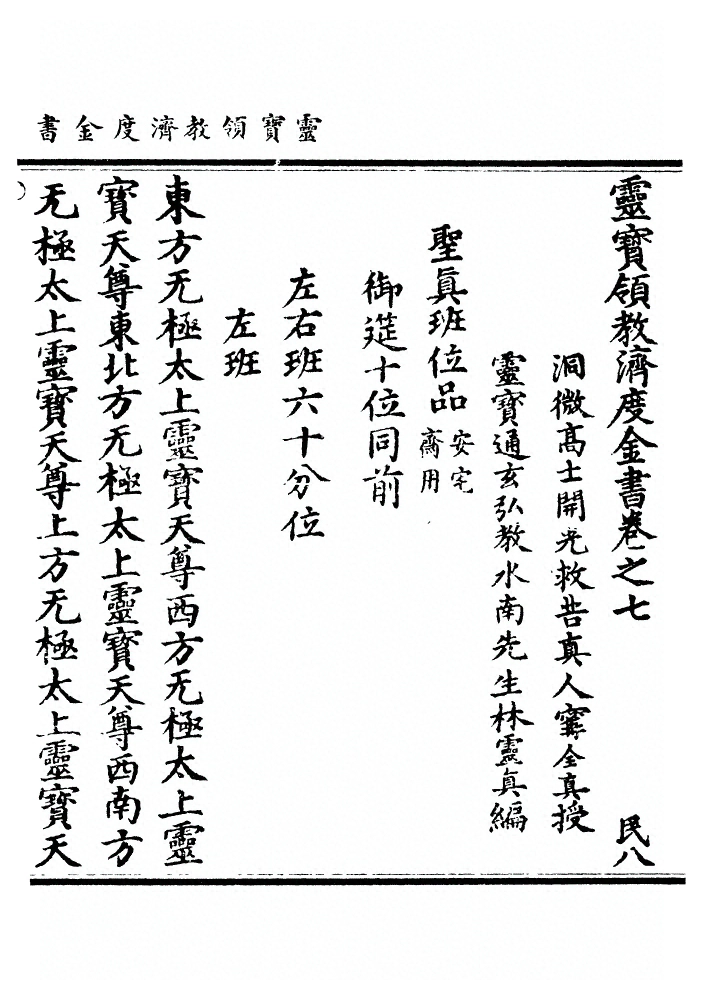 靈寶領教濟度金書
靈寶領教濟度金書卷之七 民八
洞微高士開光救苦真人寗全真授
靈寶通玄弘教水南先生林靈真編
聖真班位品 安宅齋用
御筵十位同前
左右班六十分位
左班
東方无極太上靈寶天尊西方无極太上靈
寶天尊東北方无極太上靈寶天尊西南方
无極太上靈寶天尊上方无極太上靈寶天